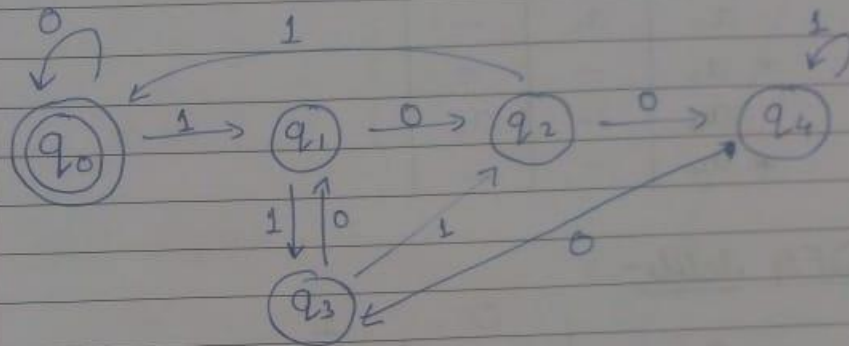 0
1
1
q0 1 q1 0 q2 0 q4
1 0 1 0
q3